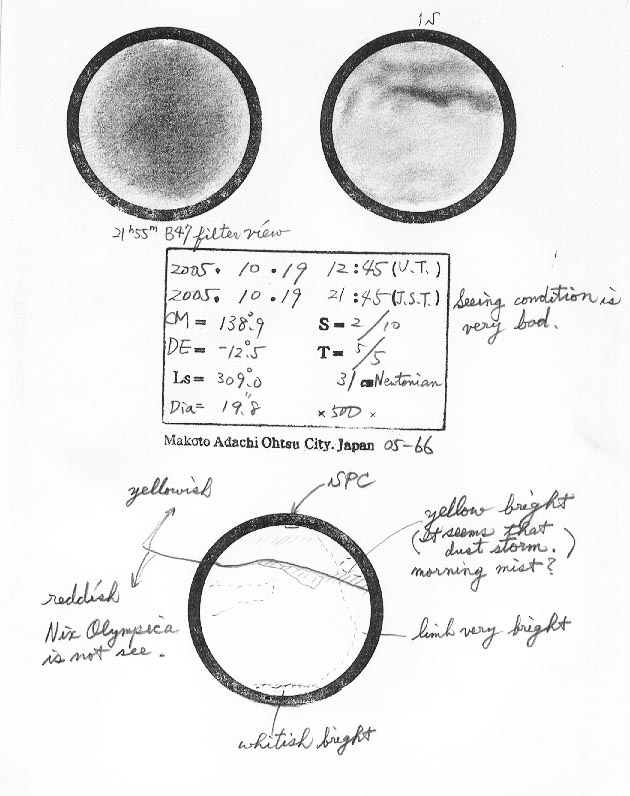 IN
21ʰ55ᵐ B47 filter view
2005. 10. 19 12:45 (U.T.)
2005. 10. 19 21:45 (J.S.T.)
CM = 138°.9 S = 2/10
DE = -12°.5 T = 5/5
Ls = 309°.0 31 cm Newtonian
Dia = 19".8 × 500 ×
Seeing condition is
very bad.
Makoto Adachi Ohtsu City. Japan 05-66
yellowish
SPC
yellow bright
(It seems that
dust storm.)
morning mist?
reddish
Nix Olympica
is not see.
limb very bright
whitish bright